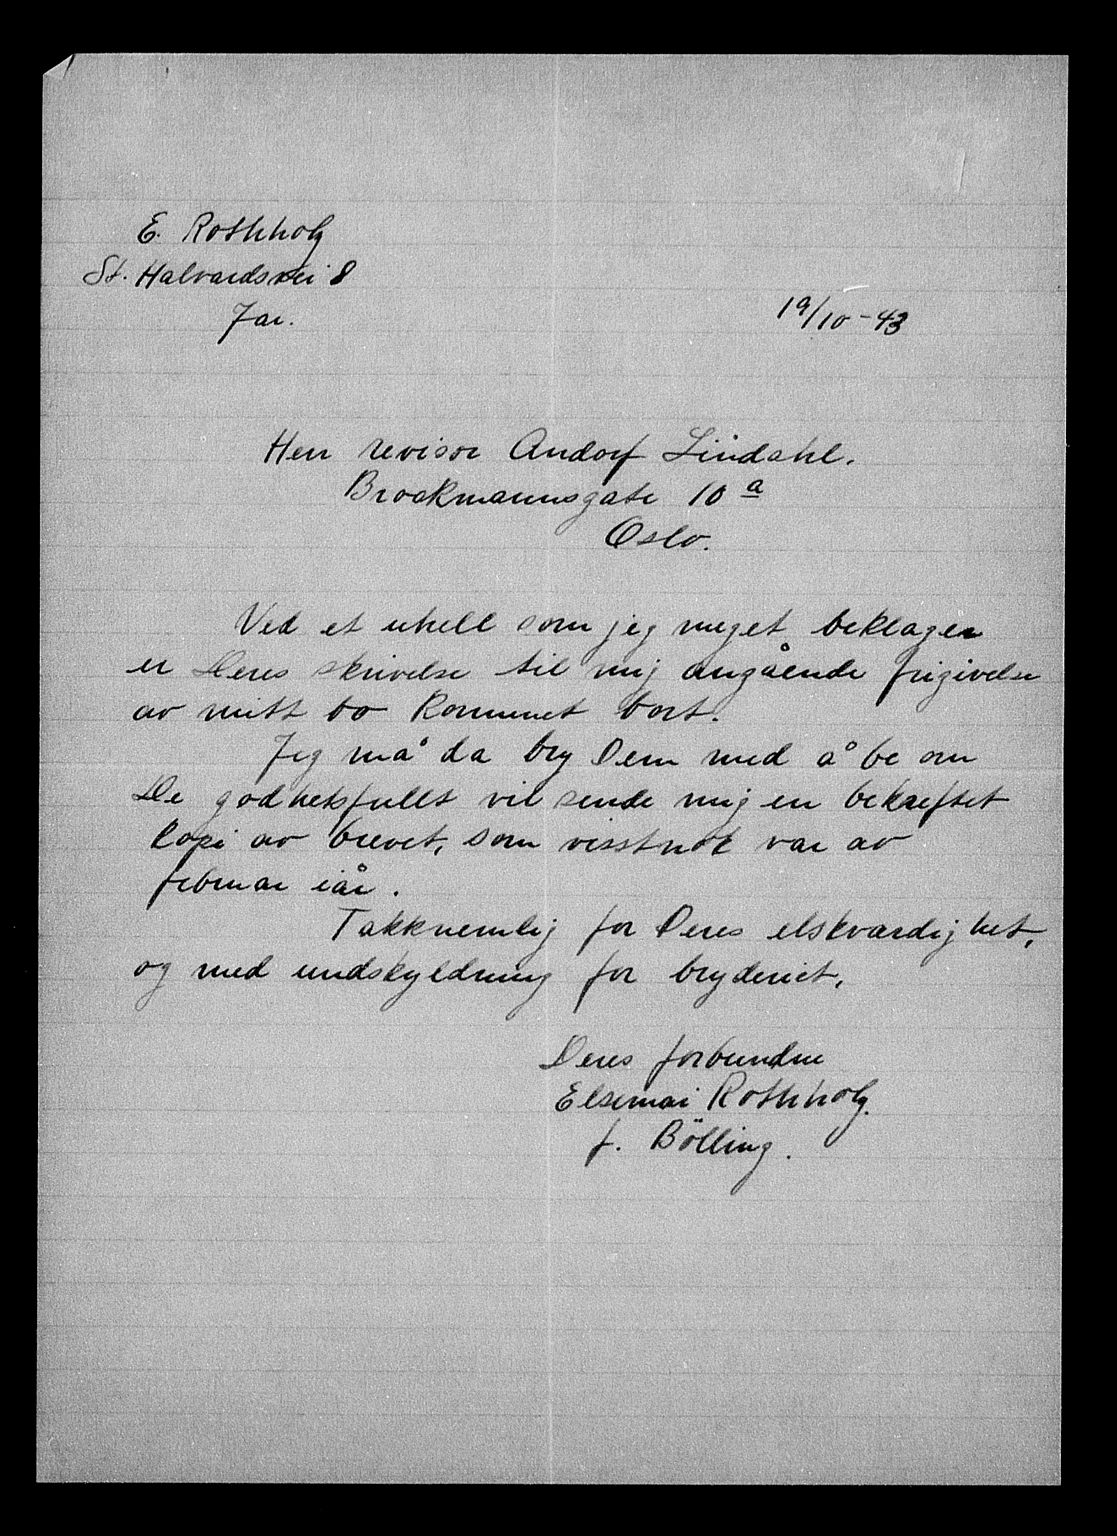 E. Rothholz
St. Halvardsvei 8
Jar.
19/10-43
Herr revisor Andorf Lindahl.
Brockmannsgate 10 a
Oslo.
Ved et uhell som jeg meget beklager
er Deres skrivelse til mig angående frigivelse
av mitt bo kommet bort.
Jeg må da bry Dem med å be om
De godhetsfullt vil sende mig en bekreftet
kopi av brevet, som visstnok var av
februar iår.
Takknemlig for Deres elskværdighet,
og med undskyldning for bryderiet,
Deres forbundne
Elsemai Rothholz.
f. Bölling.